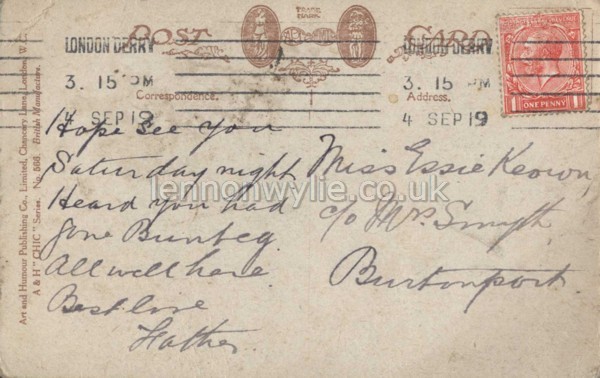 TRADE MARK
POST CARD
LONDONDERRY LONDONDERRY
3. 15 PM 3. 15 PM
4 SEP 19 4 SEP 19
Correspondence. Address.
1 ONE PENNY 1
Hope see you
Saturday night
Heard you had
gone Bunbeg
All well here
Best love
Father
Miss Essie Keown,
c/o Mrs. Smyth
Burtonport
lennonwylie.co.uk
Art and Humour Publishing Co., Limited, Chancery Lane, London, W.C.
A & H "CHIC" Series. No. 568. British Manufacture.